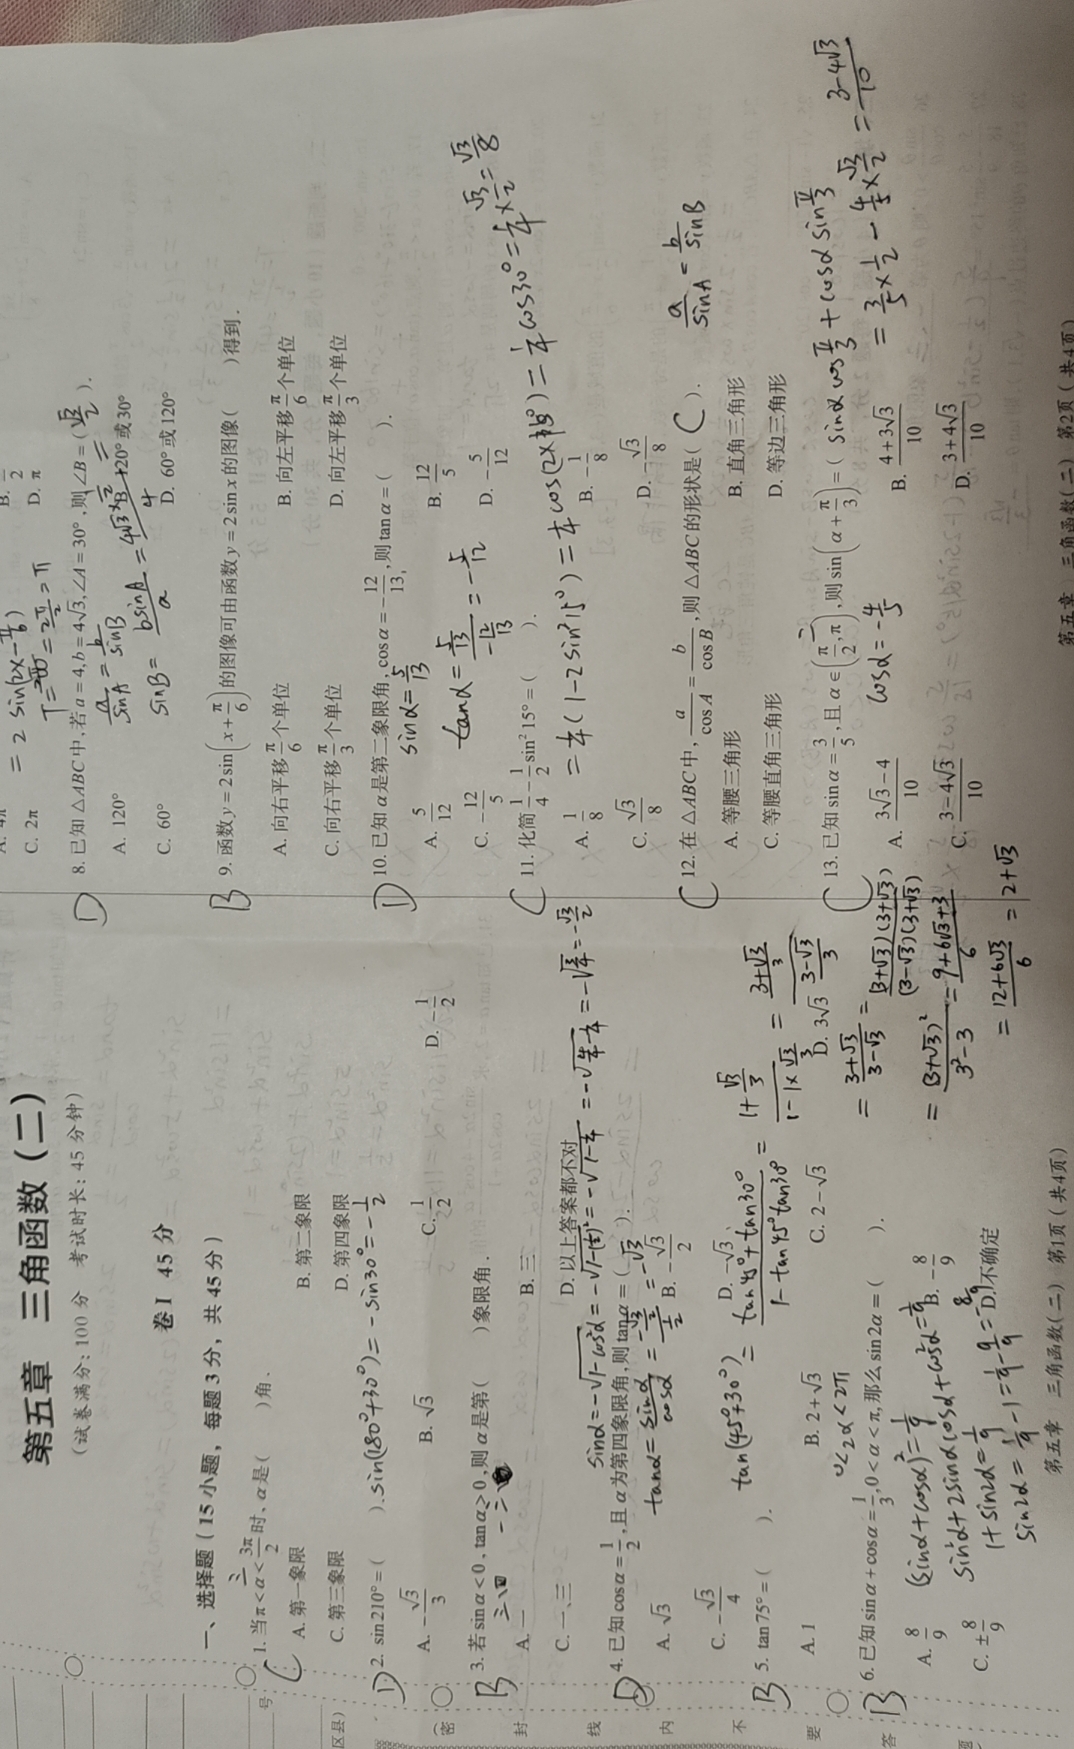 第五章 三角函数(二)
(试卷满分:100分 考试时长:45分钟)
卷Ⅰ 45分
一、选择题(15小题,每题3分,共45分)
C 1. 当π<α<3π/2时,α是( )角.
A. 第一象限 B. 第二象限
C. 第三象限 D. 第四象限
D 2. sin210°=( ). sin(180°+30°)=-sin30°=-1/2
A. -√3/3 B. √3 C. 1/2 D. -1/2
B 3. 若sinα<0,tanα>0,则α是第( )象限角.
三、四 一、三
A. 一 B. 三
C. 一、三 D. 以上答案都不对
sinα=-√(1-cos²α)=-√(1-(1/2)²)=-√(1-1/4)=-√(4/4-1/4)=-√(3/4)=-√3/2
D 4. 已知cosα=1/2,且α为第四象限角,则tanα=( ).
tanα=sinα/cosα=(-√3/2)/(1/2)=-√3
A. √3 B. -√3/2
C. -√3/4 D. -√3
B 5. tan75°=( ). tan(45°+30°)=(tan45°+tan30°)/(1-tan45°tan30°)=(1+√3/3)/(1-1×√3/3)=((3+√3)/3)/((3-√3)/3)
A. 1 B. 2+√3 C. 2-√3 D. 3√3
=(3+√3)/(3-√3)=(3+√3)(3+√3)/(3-√3)(3+√3)
=(3+√3)²/(3²-3)=(9+6√3+3)/6
=(12+6√3)/6=2+√3
0<2α<2π
B 6. 已知sinα+cosα=1/3,0<α<π,那么sin2α=( ).
(sinα+cosα)²=1/9
A. 8/9 B. -8/9
sin²α+2sinαcosα+cos²α=1/9
C. ±8/9 D. 不确定
1+sin2α=1/9
sin2α=1/9-1=1/9-9/9=-8/9
第五章 三角函数(二) 第1页(共4页)
=2sin(2x-π/6)
T=2π/2=π
C. 2π D. π
D 8. 已知△ABC中,若a=4,b=4√3,∠A=30°,则∠B=( ).
a/sinA=b/sinB
A. 120° B. 120°或30°
sinB=bsinA/a=(4√3×1/2)/4=√3/2
C. 60° D. 60°或120°
B 9. 函数y=2sin(x+π/6)的图像可由函数y=2sinx的图像( )得到.
A. 向右平移π/6个单位 B. 向左平移π/6个单位
C. 向右平移π/3个单位 D. 向左平移π/3个单位
D 10. 已知α是第二象限角,cosα=-12/13,则tanα=( ).
sinα=5/13
A. 5/12 B. 12/5
tanα=(5/13)/(-12/13)=-5/12
C. -12/5 D. -5/12
C 11. 化简1/4-1/2sin²15°=( ).
=1/4(1-2sin²15°)=1/4cos(2×15°)=1/4cos30°=1/4×√3/2=√3/8
A. 1/8 B. -1/8
C. √3/8 D. -√3/8
C 12. 在△ABC中,a/cosA=b/cosB,则△ABC的形状是( C ). a/sinA=b/sinB
A. 等腰三角形 B. 直角三角形
C. 等腰直角三角形 D. 等边三角形
C 13. 已知sinα=3/5,且α∈(π/2,π),则sin(α+π/3)=( sinαcosπ/3+cosαsinπ/3
cosα=-4/5 =3/5×1/2-4/5×√3/2=(3-4√3)/10
A. (3√3-4)/10 B. (4+3√3)/10
C. (3-4√3)/10 D. (3+4√3)/10
第五章 三角函数(二) 第2页(共4页)
号
区县)
密
封
线
内
不
要
答
题